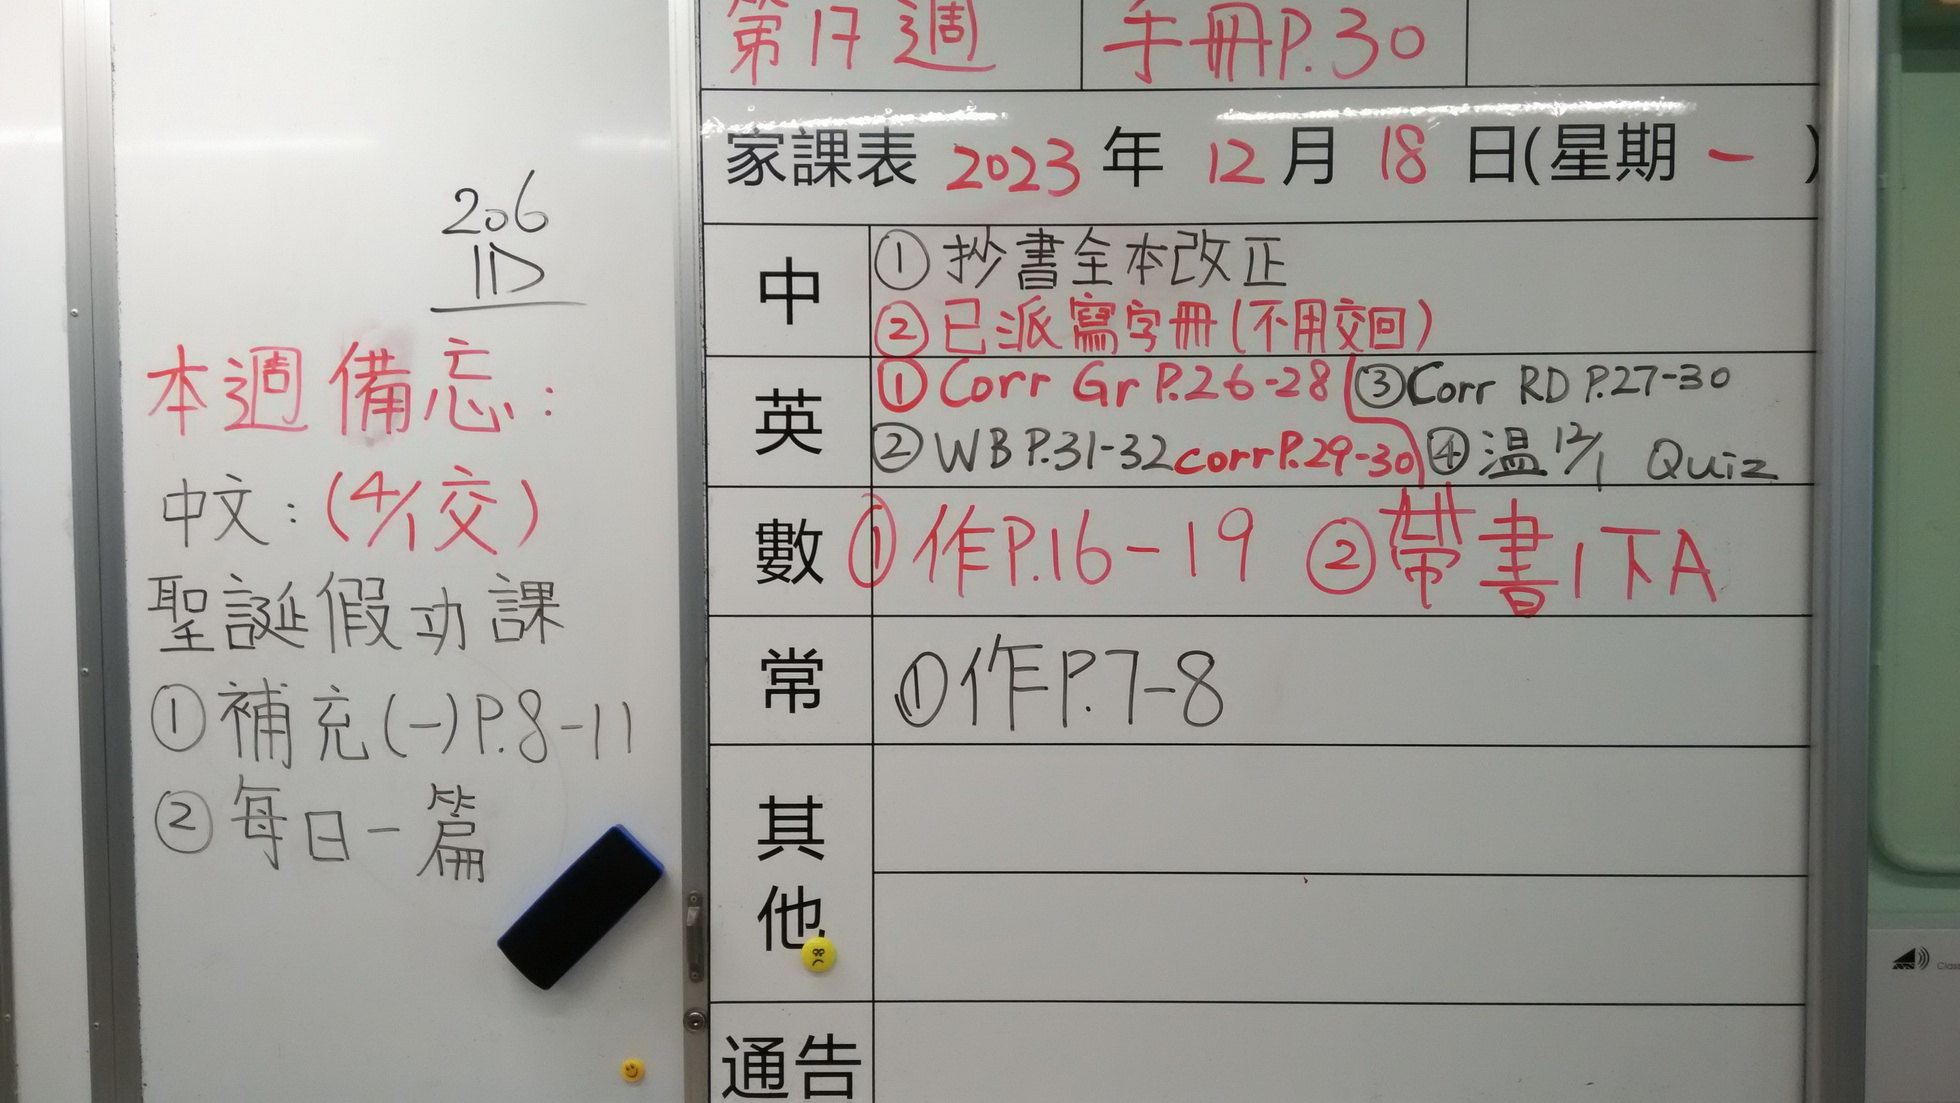 206
1D
本週備忘:
中文:(4/1交)
聖誕假功課
①補充(一)P.8-11
②每日一篇
第17週 手冊P.30
家課表 2023年12月18日(星期一)
中
①抄書全本改正
②已派寫字冊(不用交回)
英
①Corr Gr P.26-28 ③Corr RD P.27-30
②WB P.31-32 corr P.29-30 ④温12/1 Quiz
數 ①作P.16-19 ②帶書1下A
常 ①作P.7-8
其他
通告